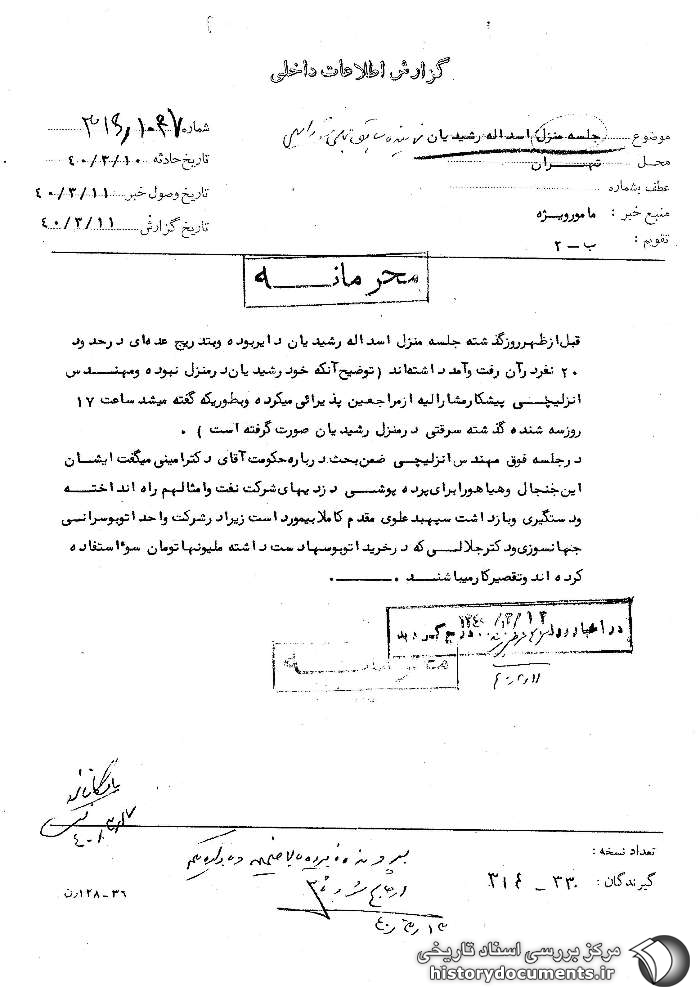 گزارش اطلاعات داخلی
موضوع جلسه منزل اسداله رشیدیان
شماره
محل تهران
تاریخ حادثه ۴۰/۳/۱۰
عطف بشماره
تاریخ وصول خبر ۴۰/۳/۱۱
منبع خبر : مامورویژه
تاریخ گزارش ۴۰/۳/۱۱
تقویم : ب – ۲
محرمانه
قبل ازظهرروزگذشته جلسه منزل اسداله رشیدیان دایربوده وبتدریج عده‌ای درحدود
۲۰ نفردرآن رفت وآمد داشته‌اند ( توضیح آنکه خود رشیدیان درمنزل نبوده ومهندس
انزلیچی پیشکارمشارالیه ازمراجعین پذیرائی میکرده وبطوریکه گفته میشد ساعت ۱۷
روزسه شنبه گذشته سرقتی درمنزل رشیدیان صورت گرفته است ) .
درجلسه فوق مهندس انزلیچی ضمن بحث درباره حکومت آقای دکترامینی میگفت ایشان
این جنجال وهیاهورابرای پرده پوشی دزدیهای شرکت نفت وامثالهم راه انداخته
ودستگیری وبازداشت سپهبد علوی مقدم کاملا بیمورد است زیرادرشرکت واحد اتوبوسرانی
جهانسوزی ودکترجلالی که درخرید اتوبوسهادست داشته ملیونهاتومان سوءاستفاده
کرده اند وتقصیرکارمیباشند .
۱۳۴۰/۳/۱۲
محرمانه
بایگانی شود
تعداد نسخه :
گیرندگان : ۳۳۰ – ۳۱۴
۳۶–۱۲۸رن
مرکز بررسی اسناد تاریخی
historydocuments.ir